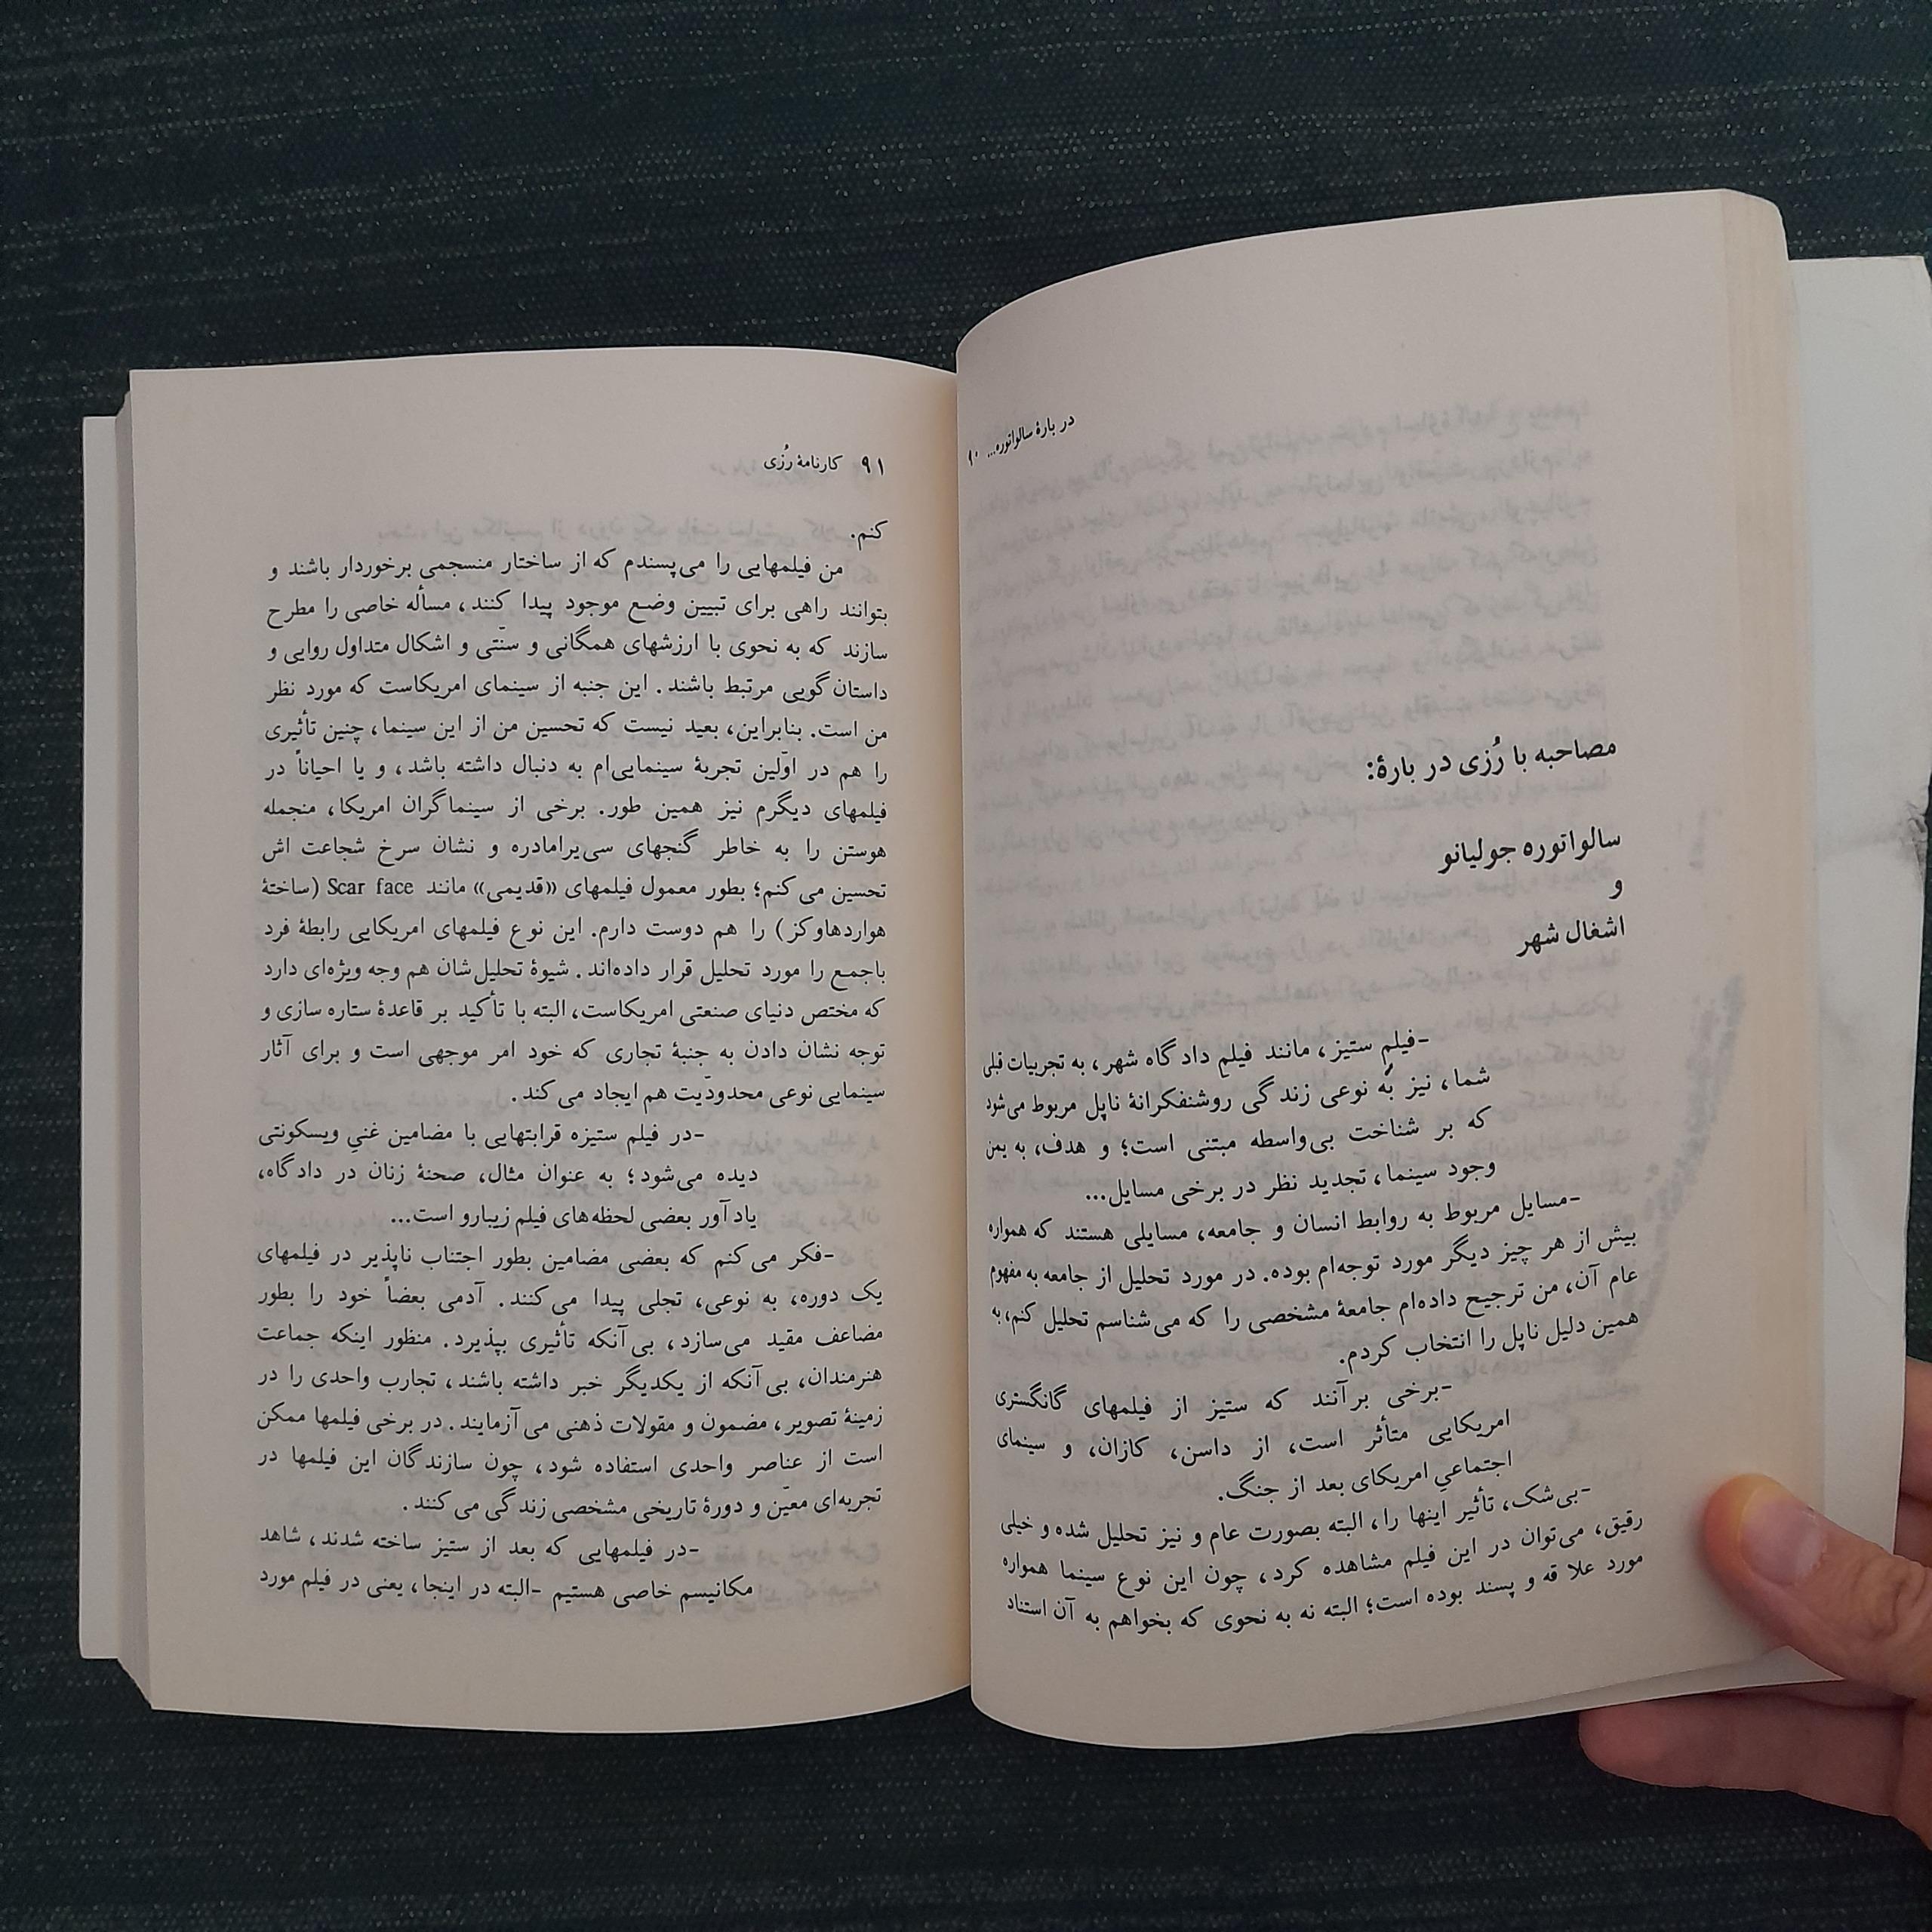 در بارهٔ سالواتوره... ۹۰
مصاحبه با رُزی در بارهٔ:
سالواتوره جولیانو
و
اشغال شهر
-فیلمِ ستیز، مانند فیلمِ دادگاه شهر، به تجربیات قبلی
شما، نیز به نوعی زندگی روشنفکرانهٔ ناپل مربوط می‌شود
که بر شناخت بی‌واسطه مبتنی است؛ و هدف، به یمن
وجود سینما، تجدید نظر در برخی مسایل...
-مسایل مربوط به روابط انسان و جامعه، مسایلی هستند که همواره
بیش از هر چیز دیگر مورد توجه‌ام بوده. در مورد تحلیل از جامعه به مفهوم
عام آن، من ترجیح داده‌ام جامعهٔ مشخصی را که می‌شناسم تحلیل کنم، به
همین دلیل ناپل را انتخاب کردم.
-برخی برآنند که ستیز از فیلمهای گانگستری
امریکایی متأثر است، از داسن، کازان، و سینمای
اجتماعیِ امریکای بعد از جنگ.
-بی‌شک، تأثیر اینها را، البته بصورت عام و نیز تحلیل شده و خیلی
رقیق، می‌توان در این فیلم مشاهده کرد، چون این نوع سینما همواره
مورد علاقه و پسند بوده است؛ البته نه به نحوی که بخواهم به آن استناد
۹۱ کارنامهٔ رُزی
کنم.
من فیلمهایی را می‌پسندم که از ساختار منسجمی برخوردار باشند و
بتوانند راهی برای تبیین وضع موجود پیدا کنند، مسأله خاصی را مطرح
سازند که به نحوی با ارزشهای همگانی و سنّتی و اشکال متداول روایی و
داستان گویی مرتبط باشند. این جنبه از سینمای امریکاست که مورد نظر
من است. بنابراین، بعید نیست که تحسین من از این سینما، چنین تأثیری
را هم در اوّلین تجربهٔ سینمایی‌ام به دنبال داشته باشد، و یا احیاناً در
فیلمهای دیگرم نیز همین طور. برخی از سینماگران امریکا، منجمله
هوستن را به خاطر گنجهای سی‌یرامادره و نشان سرخ شجاعت اش
تحسین می کنم؛ بطور معمول فیلمهای «قدیمی» مانند Scar face (ساختهٔ
هواردهاوکز) را هم دوست دارم. این نوع فیلمهای امریکایی رابطهٔ فرد
باجمع را مورد تحلیل قرار داده‌اند. شیوهٔ تحلیل‌شان هم وجه ویژه‌ای دارد
که مختص دنیای صنعتی امریکاست، البته با تأکید بر قاعدهٔ ستاره سازی و
توجه نشان دادن به جنبهٔ تجاری که خود امر موجهی است و برای آثار
سینمایی نوعی محدودّیت هم ایجاد می کند.
-در فیلم ستیزه قرابتهایی با مضامین غنیِ ویسکونتی
دیده می‌شود؛ به عنوان مثال، صحنهٔ زنان در دادگاه،
یادآور بعضی لحظه‌های فیلم زیبارو است...
-فکر می کنم که بعضی مضامین بطور اجتناب ناپذیر در فیلمهای
یک دوره، به نوعی، تجلی پیدا می‌کنند. آدمی بعضاً خود را بطور
مضاعف مقید می‌سازد، بی‌آنکه تأثیری بپذیرد. منظور اینکه جماعت
هنرمندان، بی‌آنکه از یکدیگر خبر داشته باشند، تجارب واحدی را در
زمینهٔ تصویر، مضمون و مقولات ذهنی می آزمایند. در برخی فیلمها ممکن
است از عناصر واحدی استفاده شود، چون سازندگان این فیلمها در
تجربه‌ای معیّن و دورهٔ تاریخی مشخصی زندگی می کنند.
-در فیلمهایی که بعد از ستیز ساخته شدند، شاهد
مکانیسم خاصی هستیم -البته در اینجا، یعنی در فیلم مورد